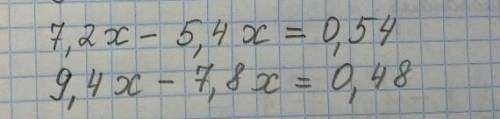 7,2x - 5,4x = 0,54
9,4x - 7,8x = 0,48